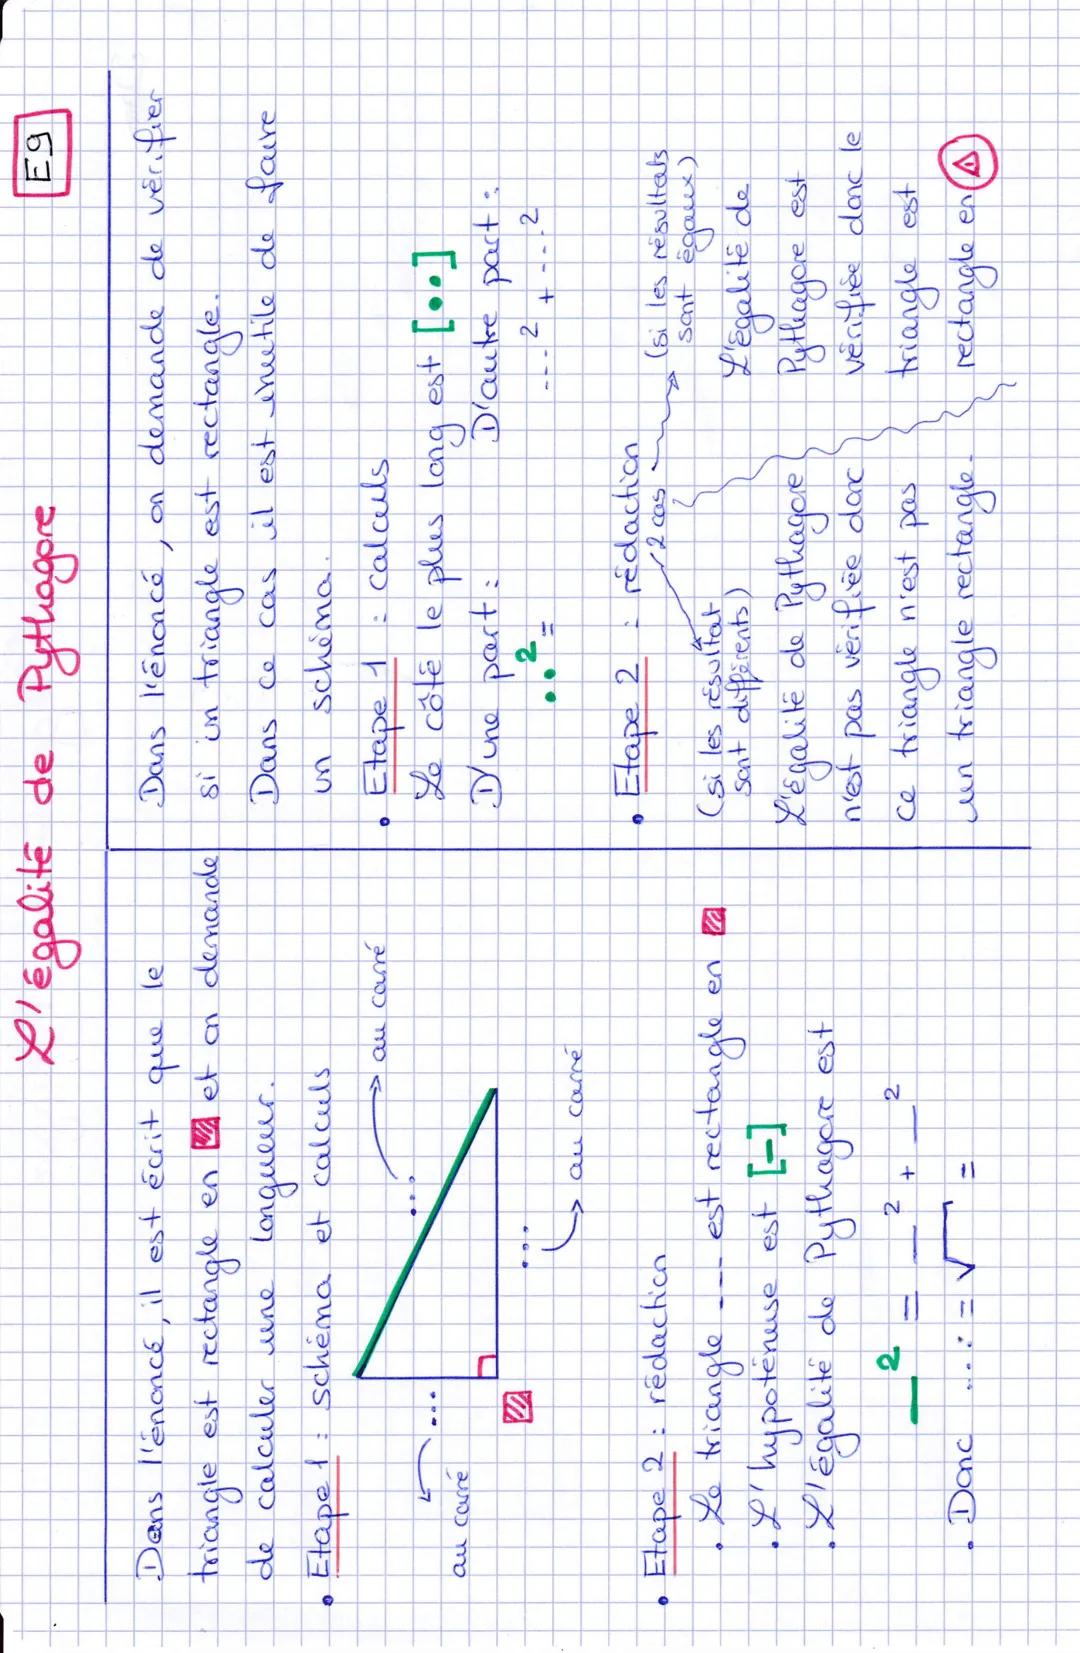 L'égalité de Pythagore
E9
Dans l'énoncé, il est écrit que le
triangle est rectangle en et on demande
de calculer une longueur.
• Etape 1 : schéma et calculs
... → au carré
au carré ← ...
...
→ au carré
• Etape 2 : rédaction
• Le triangle --- est rectangle en
• L'hypoténuse est [–]
• L'égalité de Pythagore est
__² = __² + __²
• Donc ...: = √ =
Dans l'énoncé, on demande de vérifier
si un triangle est rectangle.
Dans ce cas il est inutile de faire
un schéma.
• Etape 1 : calculs
Le côté le plus long est [••]
D'une part : D'autre part :
••² = ---² + ---²
• Etape 2 : rédaction
2 cas
(si les résultat
sont différents)
L'égalité de Pythagore
n'est pas vérifiée donc
ce triangle n'est pas
un triangle rectangle.
(si les résultats
sont égaux)
L'égalité de
Pythagore est
vérifiée donc le
triangle est
rectangle en ⚠